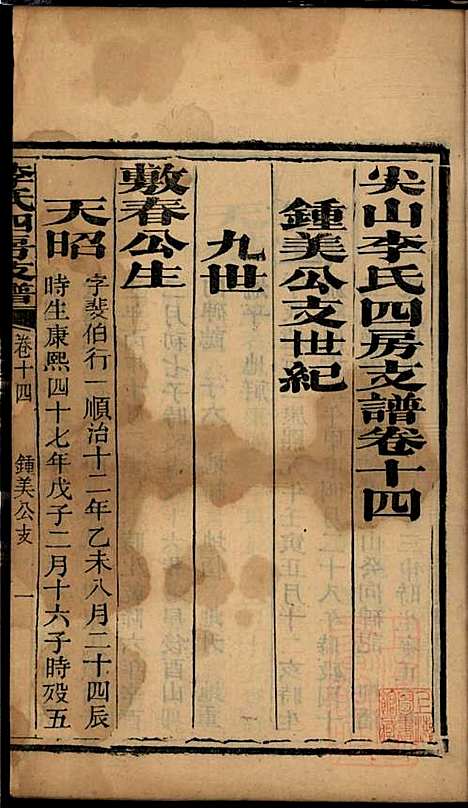 尖山李氏四房支譜卷十四
鍾美公支世紀
九世
敷春公生
天昭
字裴伯行一順治十二年乙未八月二十四辰
時生康熙四十七年戊子二月十六子時歿五
李氏四房支譜
卷十四
鍾美公支
一